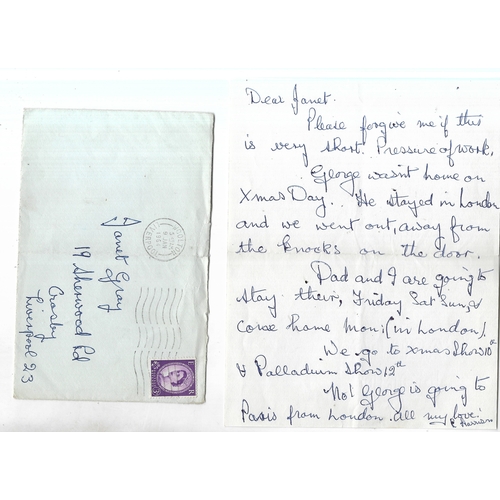 Janet Gray
19 Sherwood Rd
Crosby
Liverpool 23
Dear Janet.
Please forgive me if this
is very short. Pressure of work.
George wasn't home on
Xmas Day.. He stayed in London
and we went out, away from
the knocks on the door.
Dad and I are going to
stay their, Friday Sat Sun, &
come home Mon: (in London).
We go to Xmas Show 10th
& Palladium Show 12th
No! George is going to
Paris from London. all my love.
Harrison